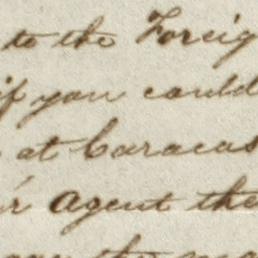 to the Foreig
if you could
at Caracas
r Agent the
the